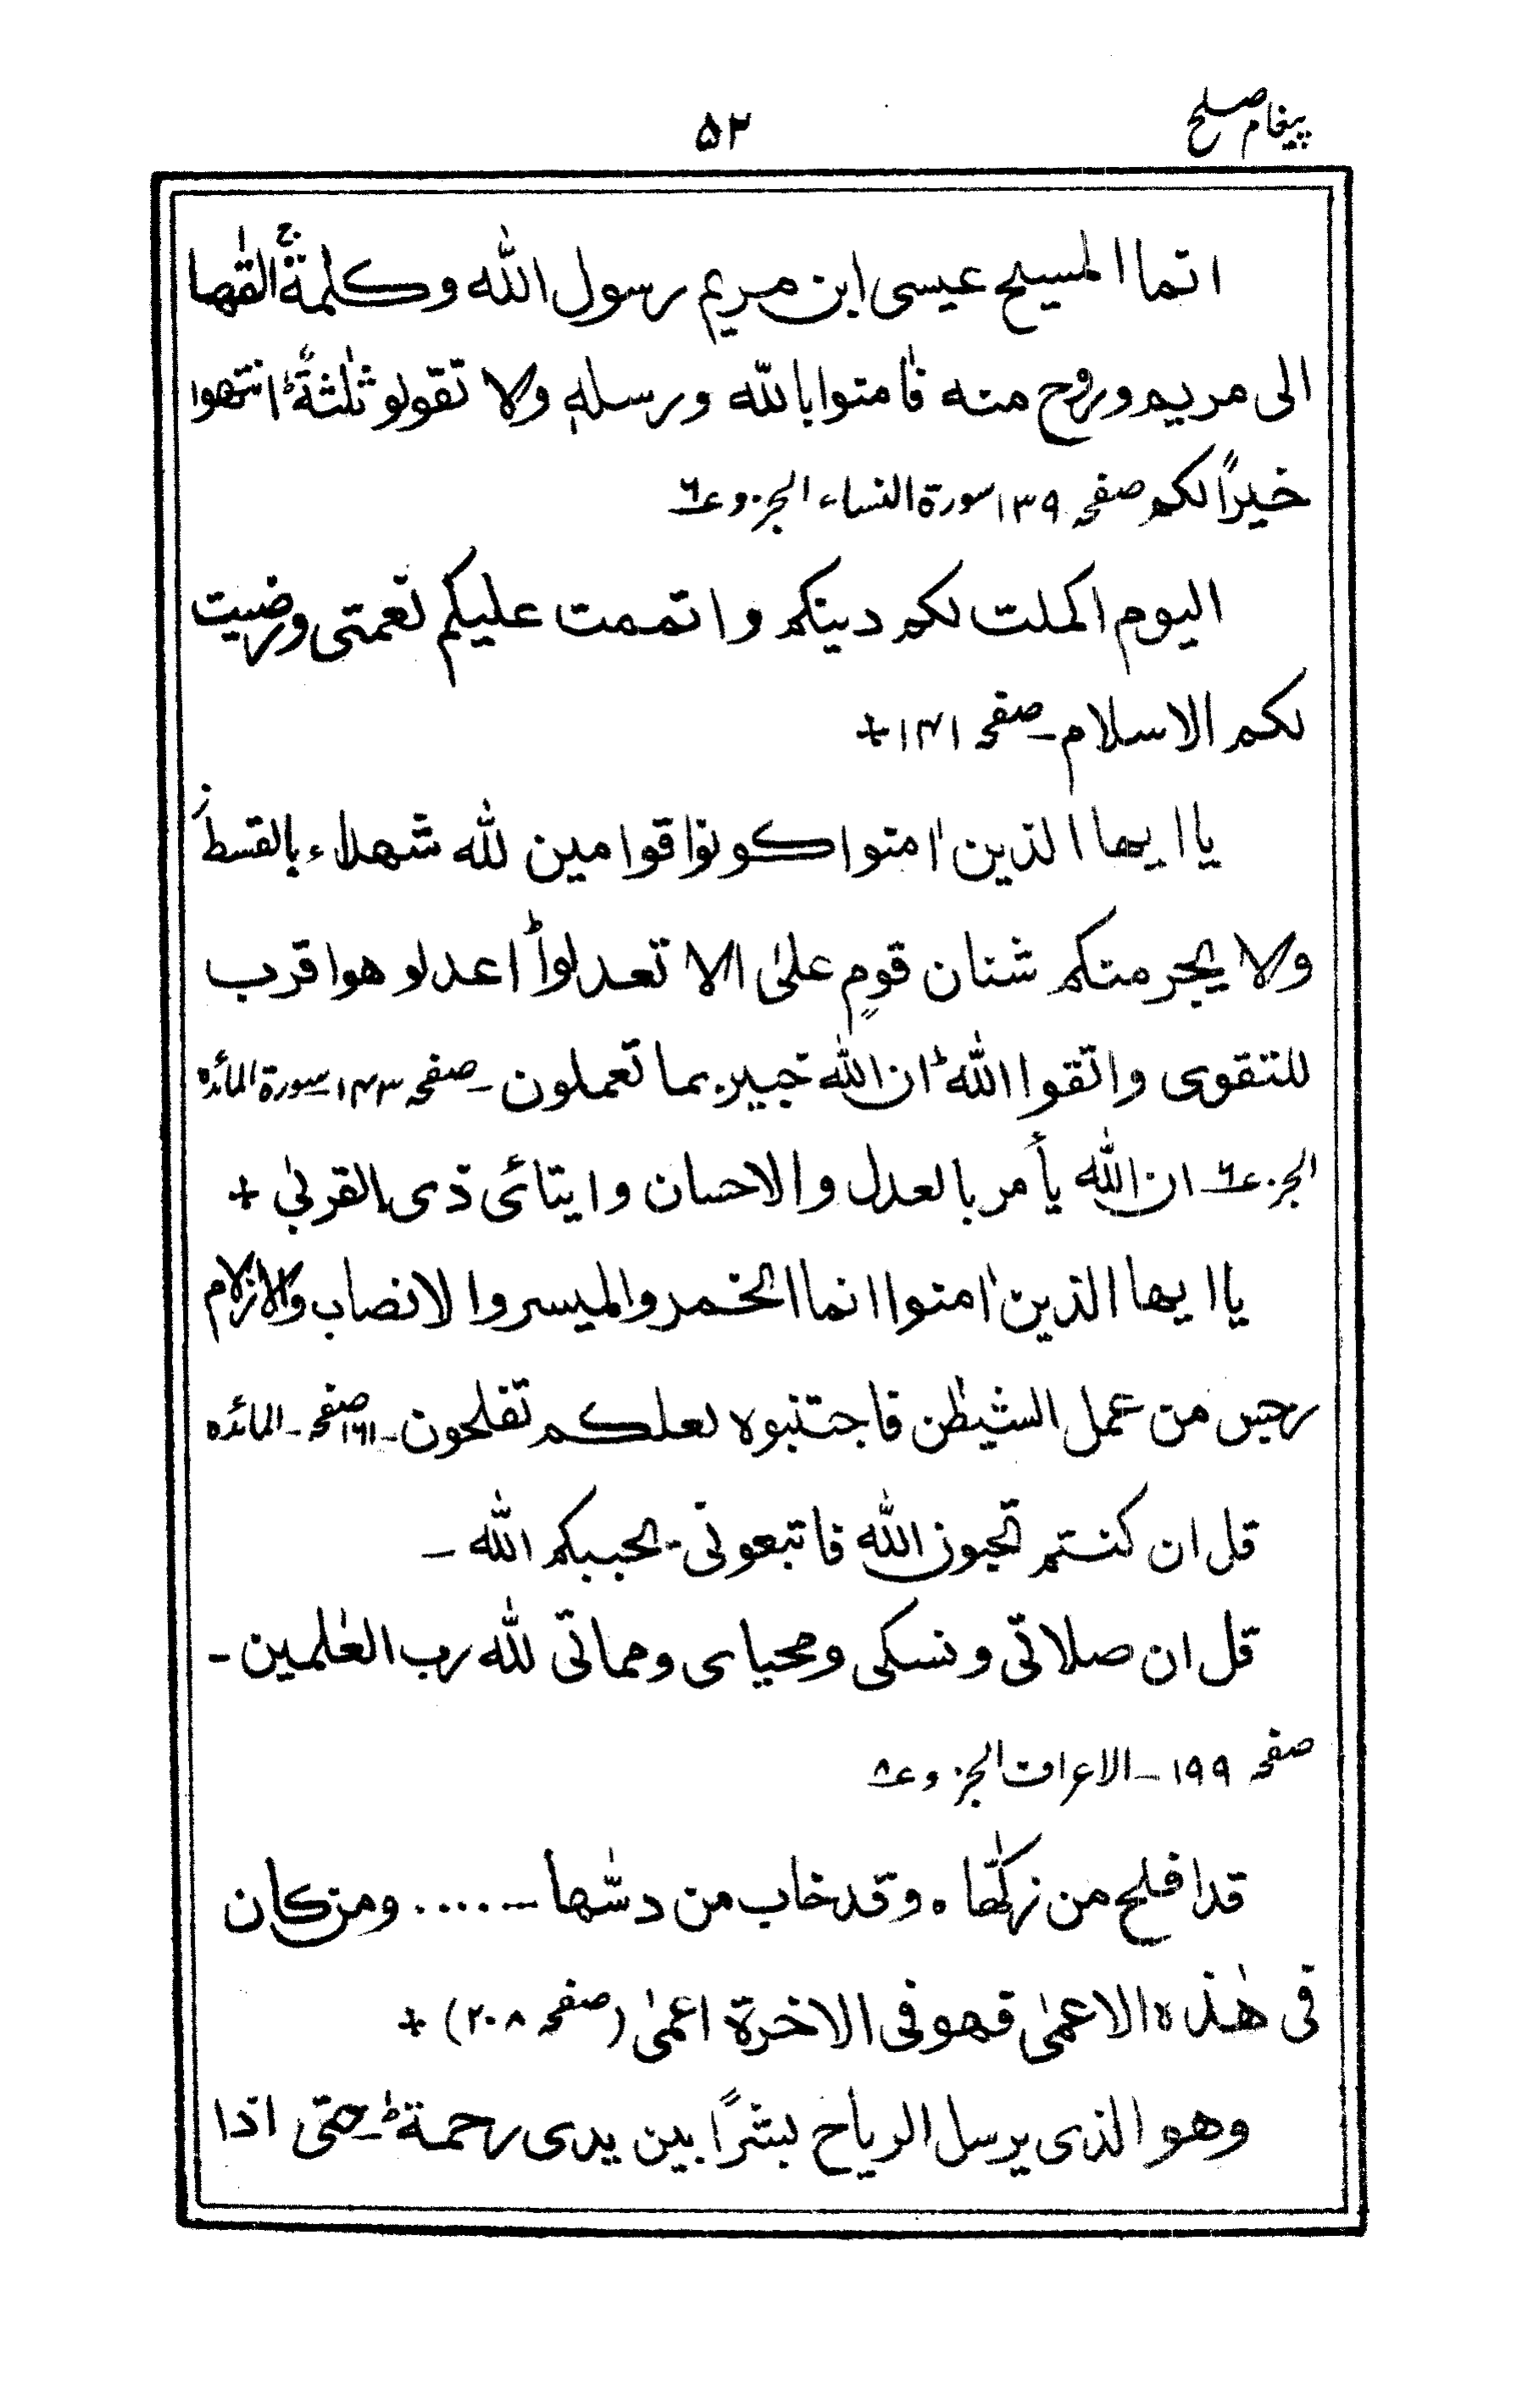 پیغام صلح
۵۲
انما المسیح عیسی ابن مریم رسول الله وکلمةٌ القٰها
الی مریم وروح منه فاٰمنوا بالله ورسلہٖ ولا تقولو ثلٰثةٌ ؕ انتهوا
خیرًا لکم صفحہ ۱۳۹ سورة النساء الجزو ع۶
الیوم اکملت لکم دینکم واتممت علیکم نعمتی ورضیت
لکم الاسلام ۔ صفحہ ۱۴۱ +
یا ایها الذین اٰمنوا کونوا قوامین لله شهداء بالقسط ز
ولا یجرمنکم شنان قومٍ علیٰ الا تعدلوا ؕ اعدلو هو اقرب
للتقوی واتقوا الله ؕ ان الله خبیر بما تعملون ۔ صفحہ ۱۴۳ ۔ سورة المائدہ
الجز ع۶ ۔ ان الله یأمر بالعدل والاحسان وایتائی ذی القربیٰ +
یا ایها الذین اٰمنوا انما الخمر والمیسر والانصاب والازلام
رجس من عمل الشیطٰن فاجتنبوہ لعلکم تفلحون ۔ ۱۶۱ صفحہ ۔ المائدہ
قل ان کنتم تحبون الله فاتبعونی ۔ یحببکم الله ۔
قل ان صلاتی ونسکی ومحیای ومماتی لله رب العٰلمین ۔
صفحہ ۱۹۹ ۔ الاعراف الجزو ع۸
قد افلح من زکّٰها ہ وقد خاب من دسّٰها ۔ ...... ومن کان
فی هٰذہ الاعمیٰ فهو فی الاخرة اعمیٰ (صفحہ ۲۰۸) +
وهو الذی یرسل الریاح بشرًا بین یدی رحمة ؕ ۔ حتی اذا